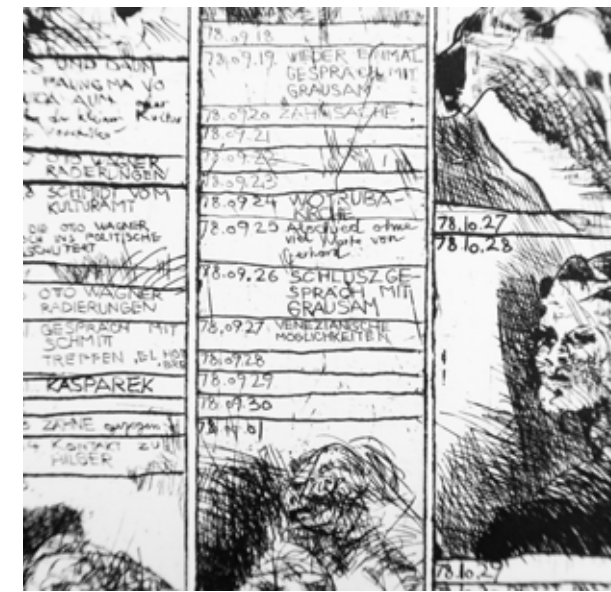 UND DAUN
MALING MA VO
AUM oder
der kleinen Kultur
OTO WAGNER
RADIERUNGEN
SCHMIDT VOM
KULTURAMT
DIE OTO WAGNER
INS POLITISCHE
OTO WAGNER
RADIERUNGEN
GESPRÄCH MIT
SCHMITT
TREFFEN
KASPAREK
ZÄHNE gezogen
KONTAKT ZU
HILGER
78.09.18
78.09.19 WIEDER EINMAL
GESPRÄCH MIT
GRAUSAM
78.09.20 ZAHNSACHE
78.09.21
78.09.22
78.09.23
78.09.24 WOTRUBA-
KIRCHE
78.09.25 Abschied ohne
viel Worte von
Gerhard
78.09.26 SCHLUSZGE-
SPRÄCH MIT
GRAUSAM
78.09.27 VENEZIANISCHE
MÖGLICHKEITEN
78.09.28
78.09.29
78.09.30
78.10.27
78.10.28
78.10.29